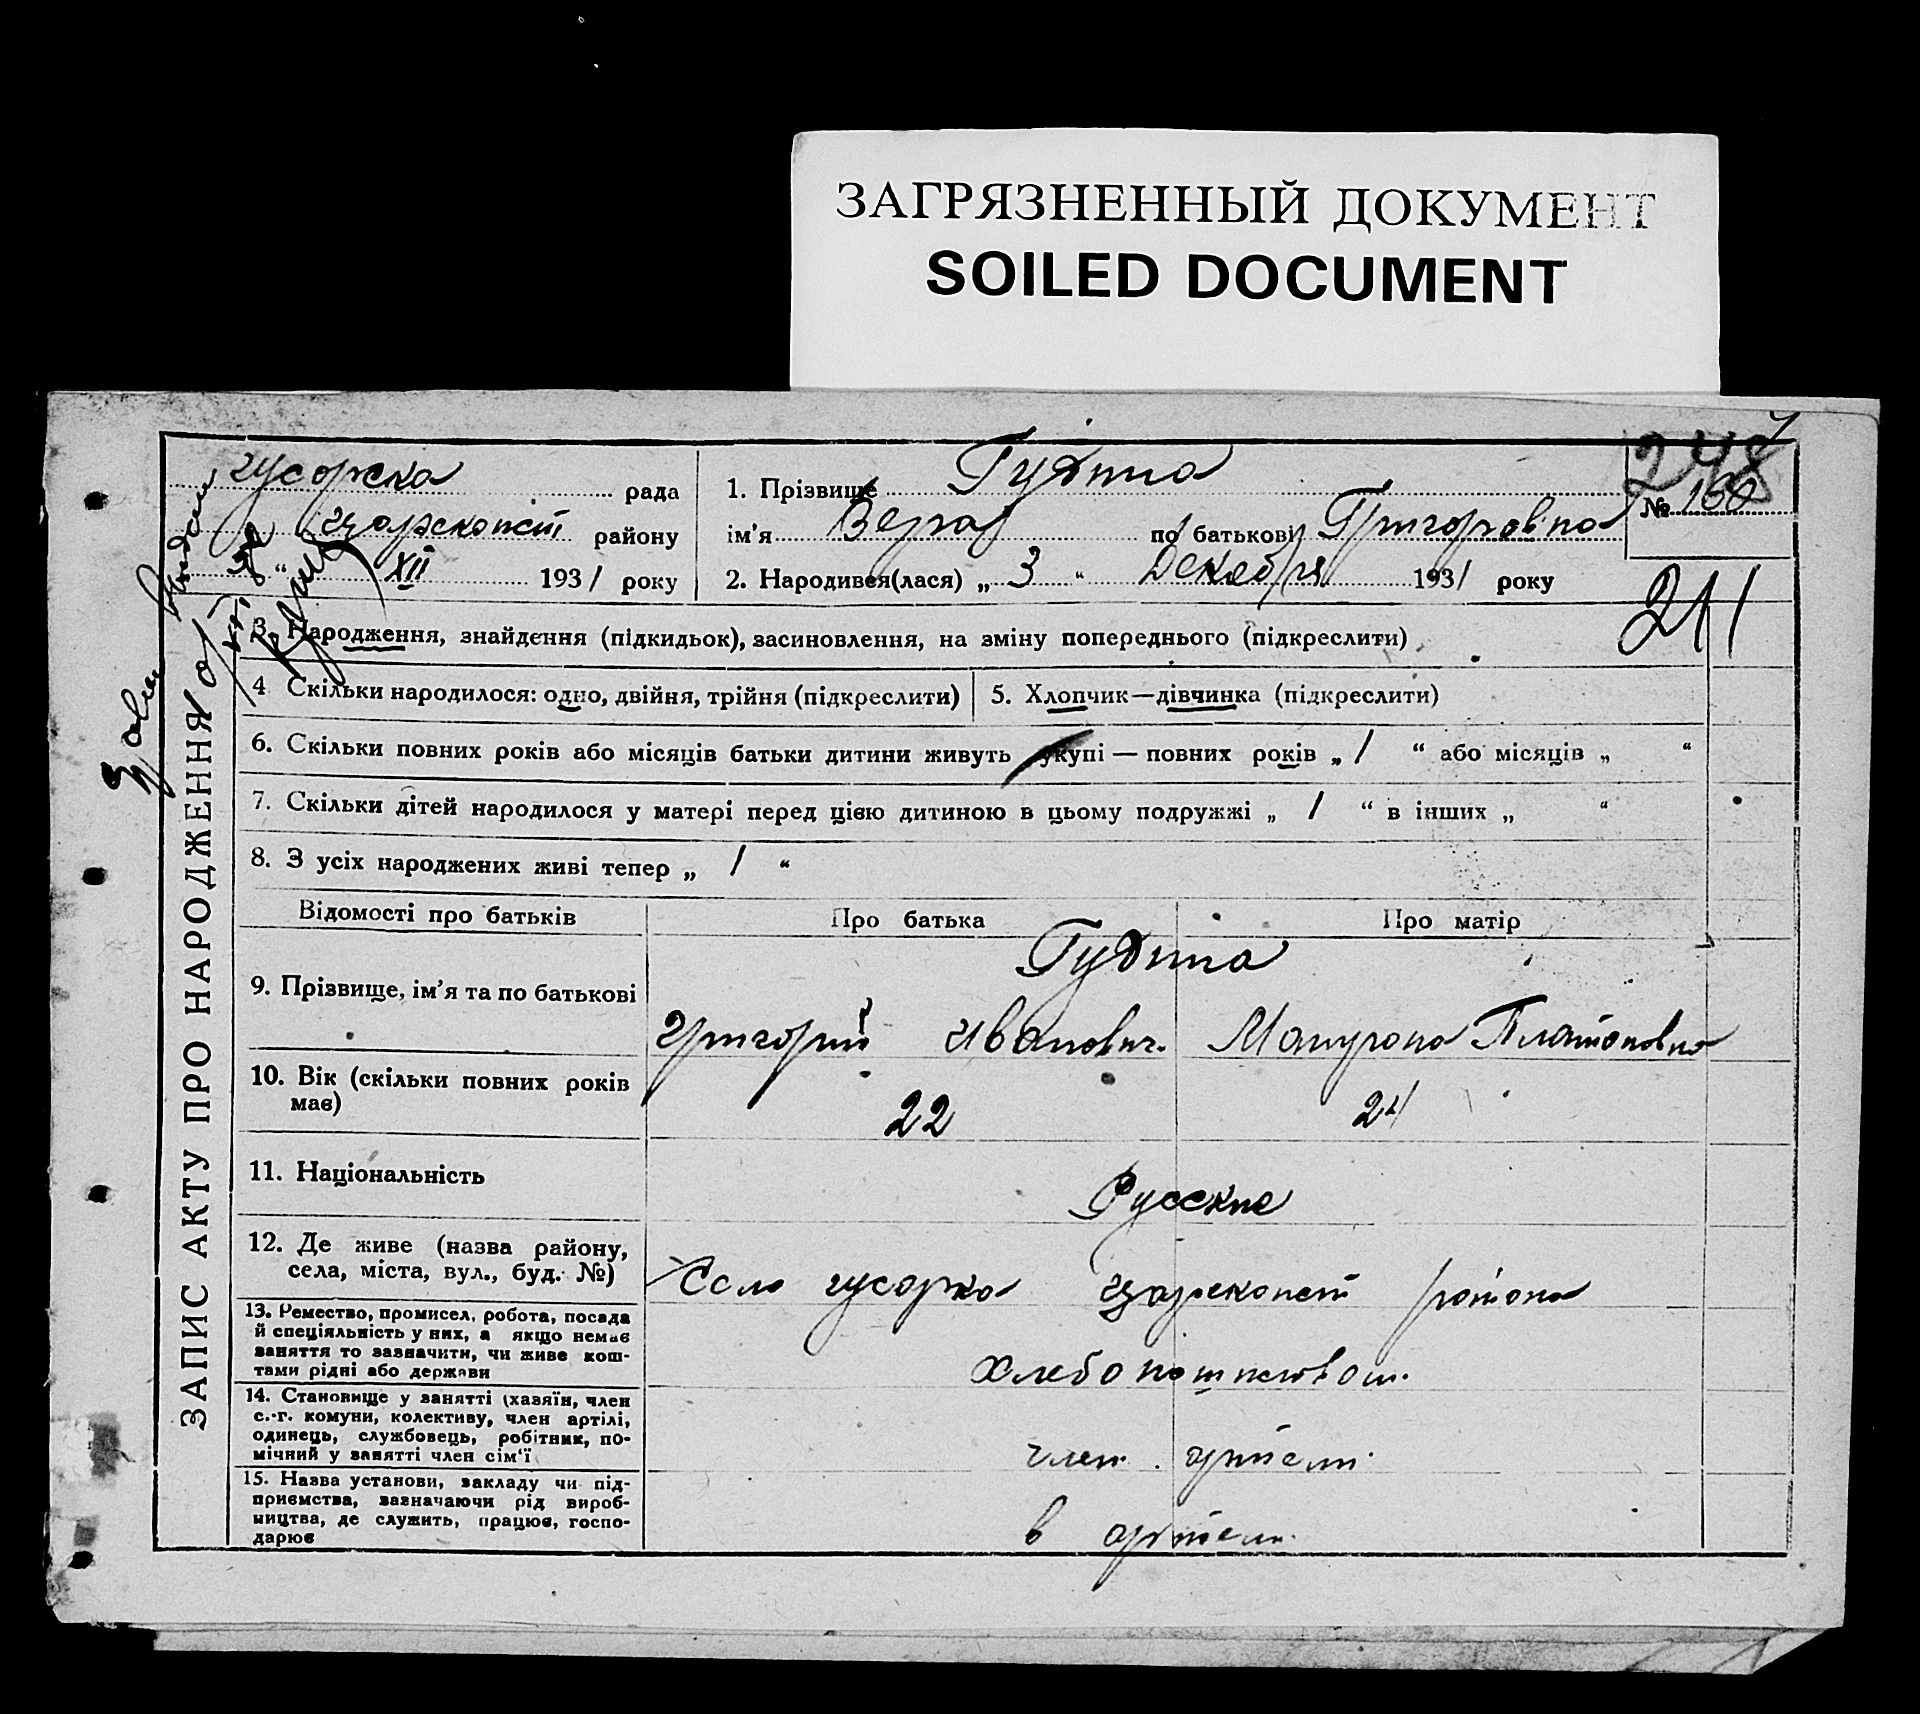 ЗАГРЯЗНЕННЫЙ ДОКУМЕНТ
SOILED DOCUMENT
рада
району
XII 1931 року
1. Прізвище Гудина
ім'я Вера по батькові Григоровна
2. Народився(лася) „ 3 “ Декабря 1931 року
№ 160
248
211
3. Народження, знайдення (підкидьок), засиновлення, на зміну попереднього (підкреслити)
4 Скільки народилося: одно, двійня, трійня (підкреслити)
5. Хлопчик—дівчинка (підкреслити)
6. Скільки повних років або місяців батьки дитини живуть укупі — повних років „ 1 “ або місяців „ “
7. Скільки дітей народилося у матері перед цією дитиною в цьому подружжі „ 1 “ в інших „ “
8. З усіх народжених живі тепер „ 1 “
ЗАПИС АКТУ ПРО НАРОДЖЕННЯ
Відомості про батьків
Про батька
Про матір
9. Прізвище, ім'я та по батькові
Гудина
Григорий Иванович. Платоновна
10. Вік (скільки повних років
має)
22
11. Національність
Русские
12. Де живе (назва району,
села, міста, вул., буд. №)
Село района
13. Ремество, промисел, робота, посада
й спеціяльність у них, а якщо немає
заняття то зазначити, чи живе кош-
тами рідні або держави
14. Становище у занятті (хазяїн, член
с.-г. комуни, колективу, член артілі,
одинець, службовець, робітник, по-
мічний у занятті член сім'ї
член артели
15. Назва установи, закладу чи під-
приємства, зазначаючи рід вироб-
ництва, де служить, працює, госпо-
дарює
в артели